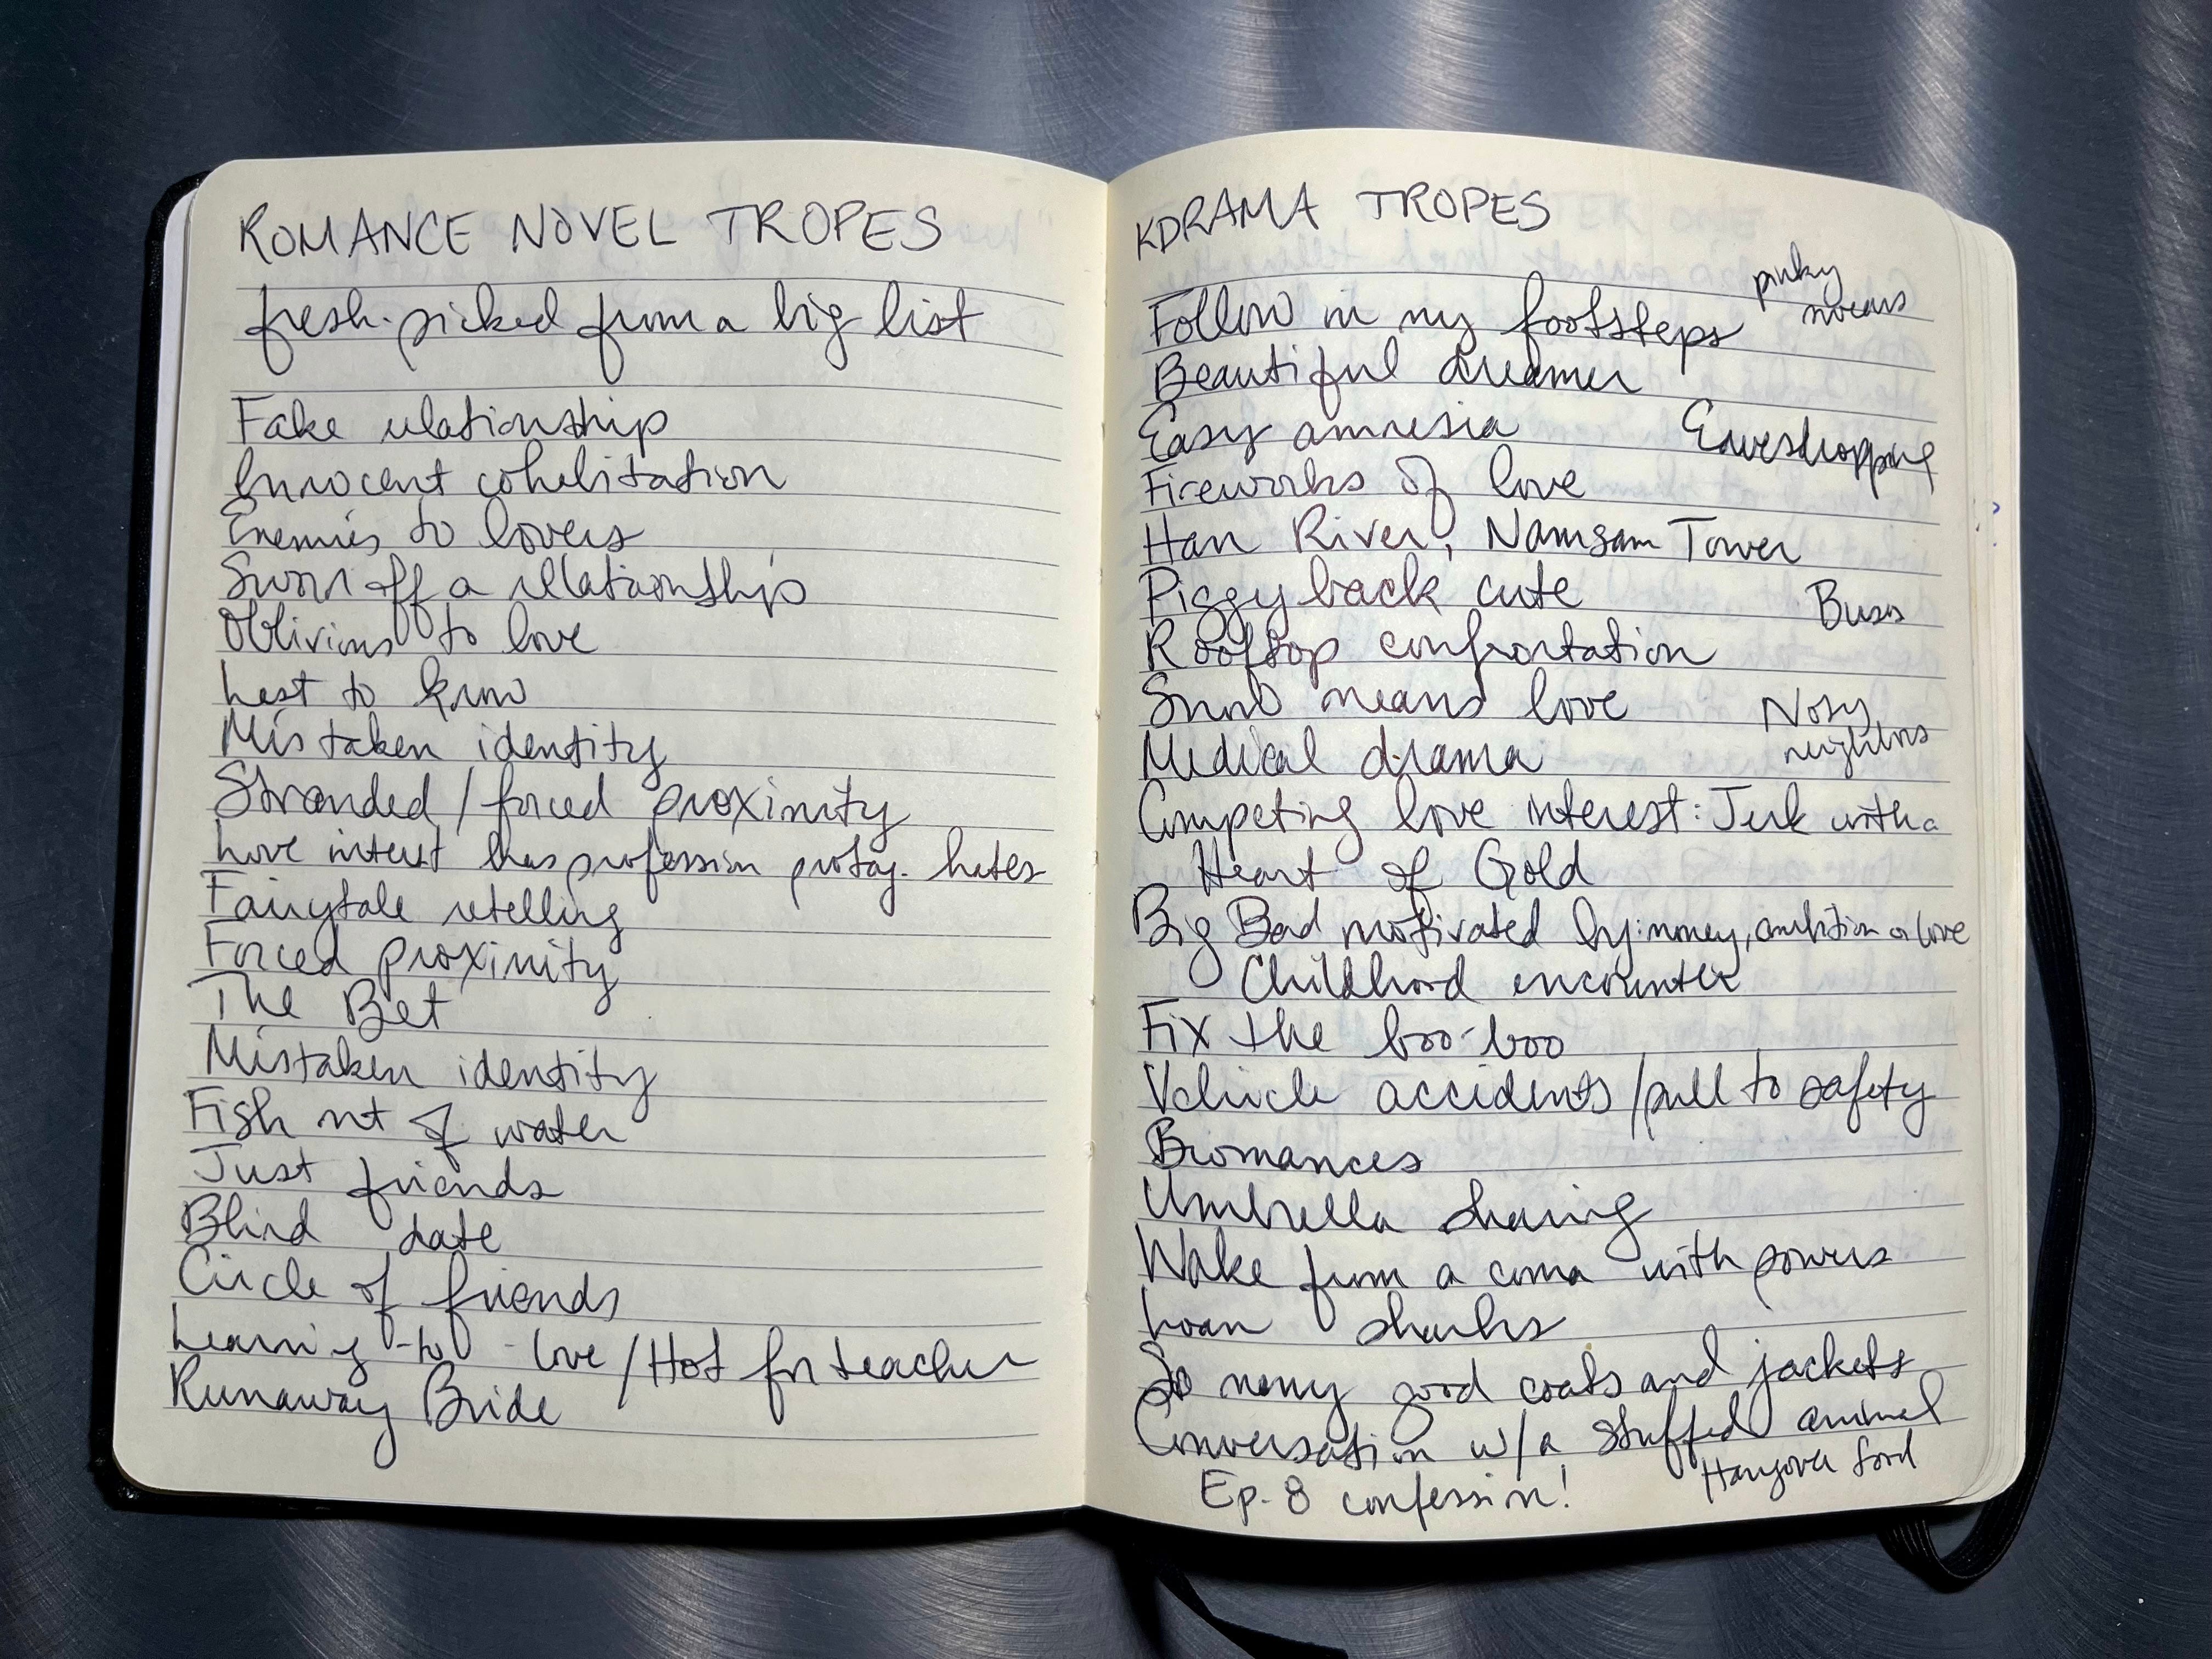 ROMANCE NOVEL TROPES
fresh-picked from a big list
Fake relationship
Innocent cohabitation
Enemies to lovers
Sworn off a relationship
Oblivious to love
Last to know
Mistaken identity
Stranded / forced proximity
Love interest has profession protag. hates
Fairytale retelling
Forced proximity
The Bet
Mistaken identity
Fish out of water
Just friends
Blind date
Circle of friends
Learning-to-love / Hot for teacher
Runaway Bride
KDRAMA TROPES
pinky
swears
Follow in my footsteps
Beautiful dreamer
Easy amnesia
Eavesdropping
Fireworks of love
Han River, Namsam Tower
Piggy back cute
Buses
Rooftop confrontation
Snow means love
Nosy
neighbors
Medical drama
Competing love interest: Jerk with a
Heart of Gold
Big Bad motivated by: money, ambition or love
Childhood encounter
Fix the boo-boo
Vehicle accidents / pull to safety
Bromances
Umbrella sharing
Wake from a coma with powers
Loan sharks
So many good coats and jackets
Conversation w/a stuffed animal
Hangover food
Ep. 8 confession!